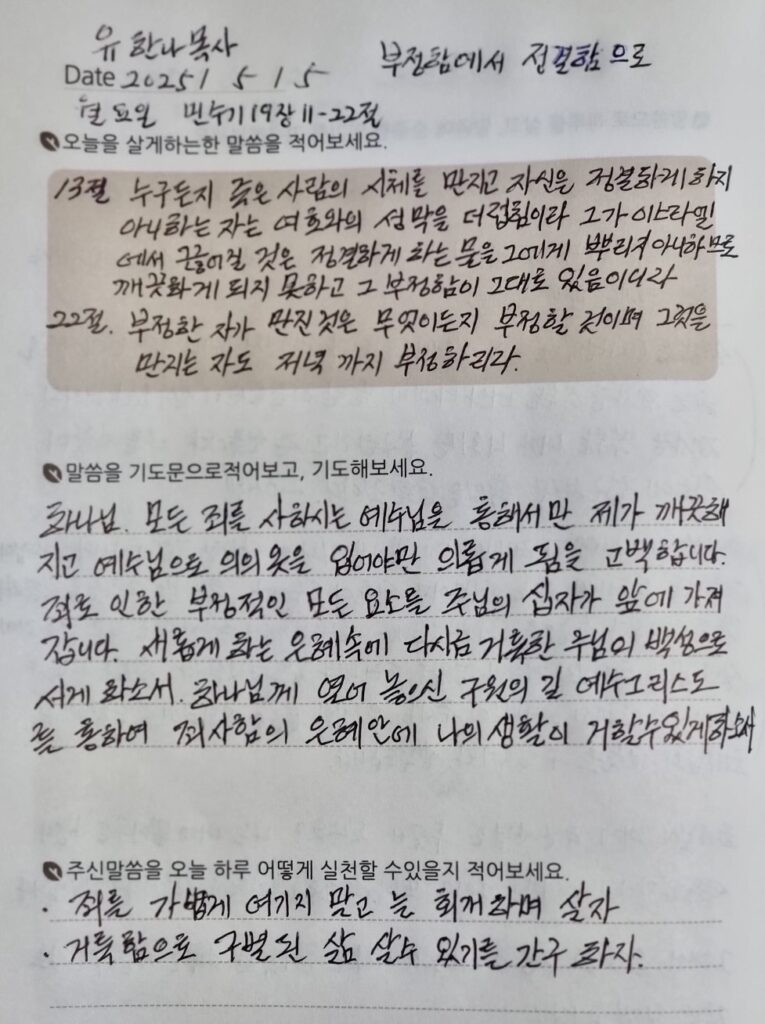 유 한나 목사
부정함에서 정결함으로
Date 2025 / 5 / 15
월요일 민수기 19장 11-22절
오늘을 살게하는한 말씀을 적어보세요.
13절 누구든지 죽은 사람의 시체를 만지고 자신을 정결하게 하지
아니하는 자는 여호와의 성막을 더럽힘이라 그가 이스라엘
에서 끊어질 것은 정결하게 하는 물을 그에게 뿌리지 아니하므로
깨끗하게 되지 못하고 그 부정함이 그대로 있음이니라
22절. 부정한 자가 만진것은 무엇이든지 부정할 것이며 그것을
만지는 자도 저녁 까지 부정하리라.
말씀을 기도문으로적어보고, 기도해보세요.
하나님. 모든 죄를 사하시는 예수님을 통해서만 제가 깨끗해
지고 예수님으로 의의 옷을 입어야만 의롭게 됨을 고백합니다.
죄로 인한 부정적인 모든 요소를 주님의 십자가 앞에 가져
갑니다. 새롭게 하는 은혜속에 다시금 거룩한 주님의 백성으로
서게 하소서. 하나님께 열어 놓으신 구원의 길 예수그리스도
를 통하여 죄사함의 은혜안에 나의 생활이 거할수있게하소서
주신말씀을 오늘 하루 어떻게 실천할 수있을지 적어보세요.
· 죄를 가볍게 여기지 말고 늘 회개하며 살자
· 거룩함으로 구별된 삶 살수 있기를 간구 하자.